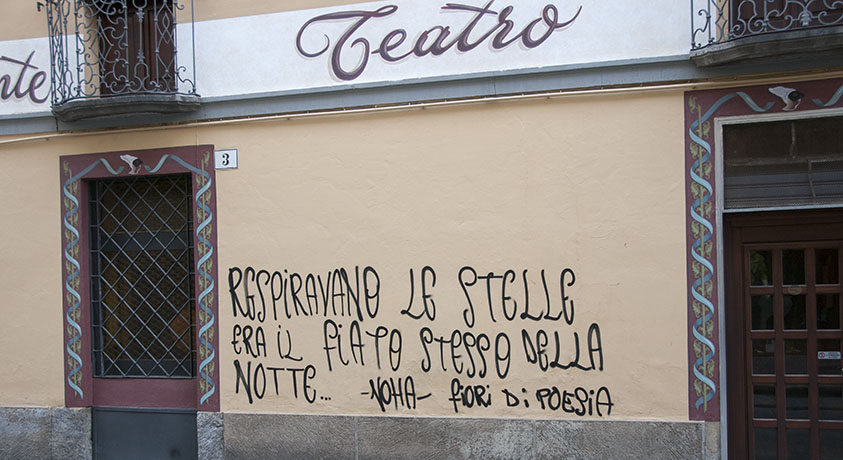 Teatro
nte
3
RESPIRAVANO LE STELLE
ERA IL FIATO STESSO DELLA
NOTTE... -NOHA- FIORI DI POESIA